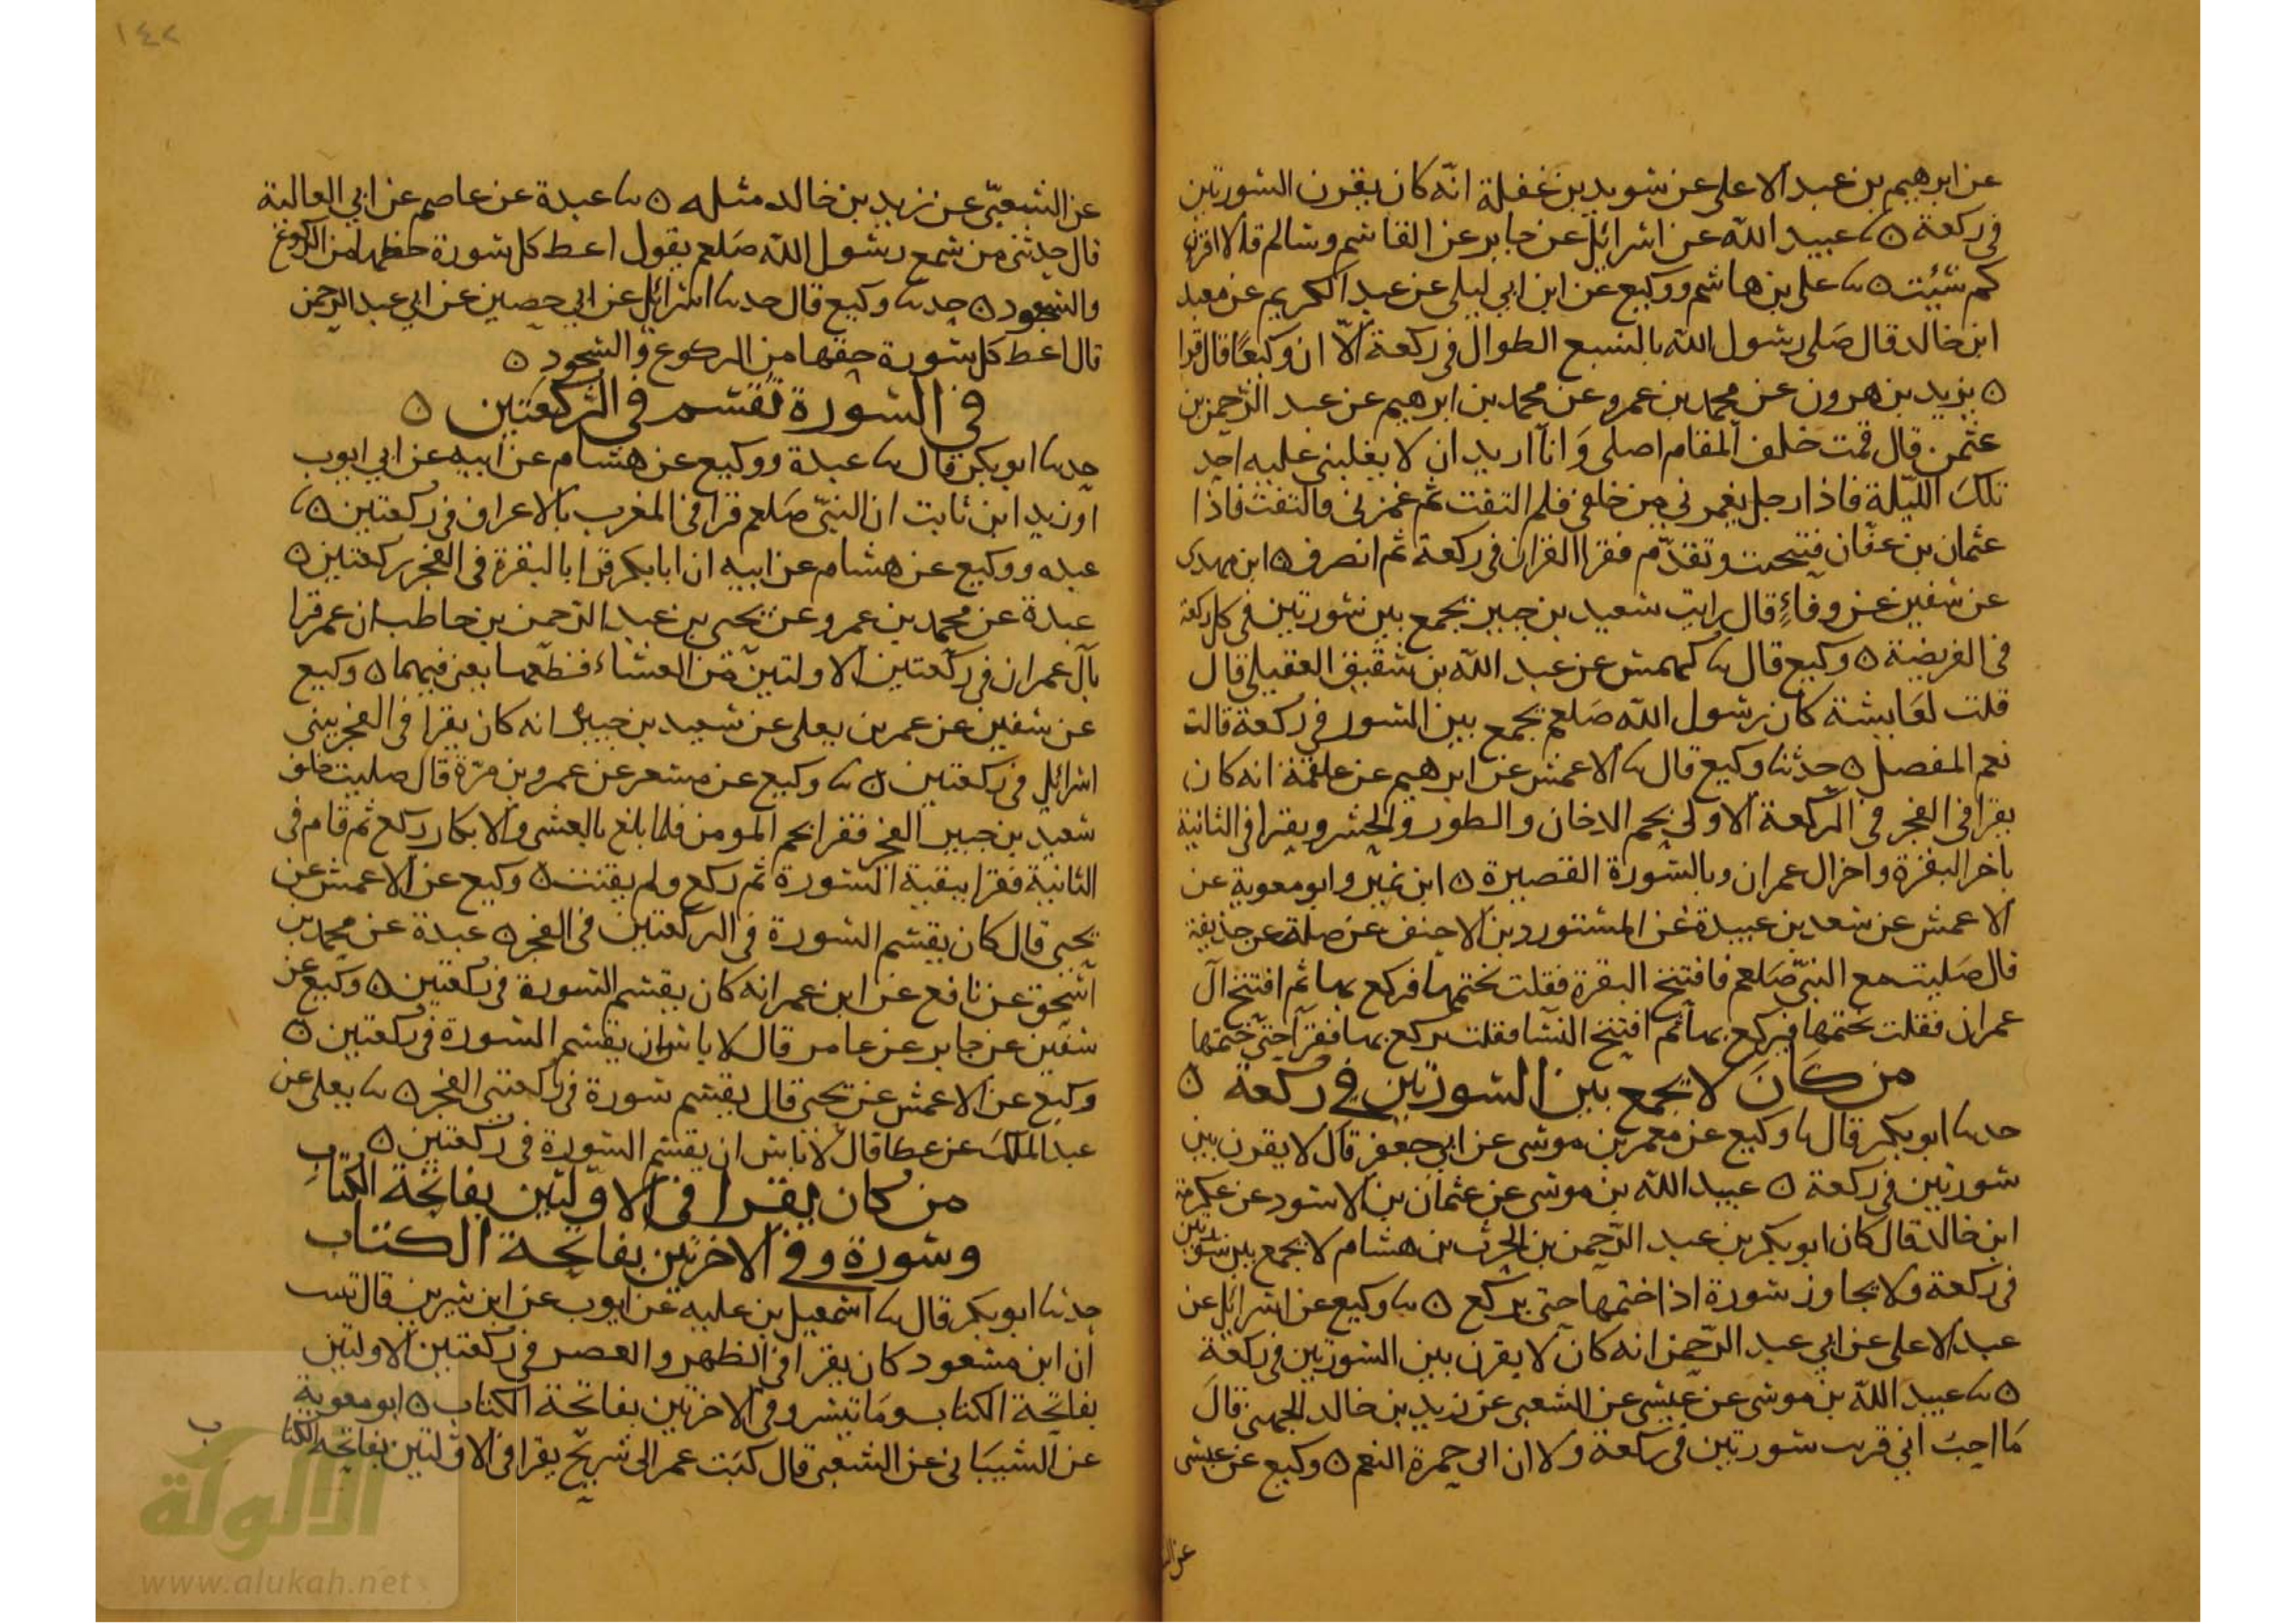 عن ابرهيم بن عبد الاعلى عن سويد بن غفلة انّه كان يقرن السورتين
في ركعة ٥ نا عبيد الله عن اسرائيل عن جابر عن القاسم وسالم قالا اقرن
كم شئت ٥ نا على بن هاشم ووكيع عن ابن ابي ليلى عن عبد الكريم عن معبد
ابن خالد قال صلى رسول الله بالسبع الطوال في ركعة الّا ان وكيعًا قال قرا
٥ يزيد بن هرون عن محمد بن عمرو عن محمد بن ابرهيم عن عبد الرّحمن بن
عثمن قال قمت خلف المقام اصلى وَانا اريد ان لا يغلبنى عليه احد
تلك اللّيلة فاذا رجل يغمزني من خلفي فلم التفت ثم غمزنى فالتفت فاذا
عثمان بن عفّان فتنحيت وتقدّم فقرا القران في ركعة ثم انصرف ٥ ابن مهدى
عن سفين عن وفاءٍ قال رايت سعيد بن جبير يجمع بين سورتين في كل ركعة
في الفريضة ٥ وكيع قال نا كهمس عن عبد الله بن شقيق العقيلي قال
قلت لعايشة كان رسول الله صَلعم يجمع بين السور في ركعة قالت
نعم المفصل ٥ حدثنا وكيع قال نا الاعمش عن ابرهيم عن علقمة انه كان
يقرا في الفجر في الركعة الاولى بحم الدخان والطور والحشر ويقرا في الثانية
باخر البقرة واخر ال عمران وبالسّورة القصيرة ٥ ابن نمير وابو معوية عن
الاعمش عن سعد بن عبيدة عن المستورد بن الاحنف عن صلة عن حذيفة
قال صَليت مع النبيّ صَلعم فافتتح البقرة فقلت يختمها فركع بها ثم افتتح آل
عمران فقلت يختمها فيركع بها ثم افتتح النسا فقلت يركع بها فقرا حتى ختمها
من كَان لا يجمع بين السورتين في ركعة ٥
حدنا ابو بكر قال نا وكيع عن معمر بن موسى عن ابي جعفر قال لا يقرن بين
سورتين في ركعة ٥ عبيد الله بن موسى عن عثمان بن الاسود عن عكرمة
ابن خالد قال كان ابو بكر بن عبد الرّحمن بن الحرث بن هشام لا يجمع بين سورتين
في ركعة ولا يجاوز سورة اذا ختمها حتى يركع ٥ نا وكيع عن اسرائل عن
عبد الاعلى عن ابي عبد الرّحمن انه كان لا يقرن بين السورتين في ركعة
٥ نا عبيد الله بن موسى عن عيسى عن الشعبي عن زيد بن خالد الجهنى قال
مَا احبُ اني قرنت سورتين في ركعة ولا ان لى حمرة النعم ٥ وكيع عن عيسى
١٤٢
عن الشعبيّ عن زيد بن خالد مثله ٥ نا عبدة عن عاصم عن ابي العالية
قال حدثنى من سمع رسول الله صَلعم يقول اعط كل سورة حظها من الركوع
والسجود ٥ حدنا وكيع قال حدنا اسرائل عن ابي حصين عن ابي عبد الرحمن
قال اعط كل سورة حقها من الركوع والسجود ٥
في السورة تقسم في الرّكعتين ٥
حدنا ابو بكر قال نا عبدة ووكيع عن هشام عن ابيه عن ابي ايوب
او زيد ابن ثابت ان النبيّ صَلعم قرا في المغرب بالاعراف في ركعتين ٥ نا
عبده ووكيع عن هشام عن ابيه ان ابا بكر قرا بالبقرة في الفجر ركعتين ٥
عبدة عن محمد بن عمرو عن يحيى بن عبد الرّحمن بن حاطب ان عمر قرا
بآل عمران في ركعتين الاولتين من العشاء فقطعها يعنى فيهما ٥ وكيع
عن سفين عن عمر بن يعلى عن سعيد بن جبير انه كان يقرا في الفجر ببنى
اسرائل في ركعتين ٥ نا وكيع عن مسعر عن عمرو بن مرّة قال صليت خلف
سعيد بن جبير الفجر فقرا بحم المومن فلما بلغ بالعشى والابكار ركع ثم قام في
الثانية فقرا ببقية السّورة ثم ركع ولم يقنت ٥ وكيع عن الاعمش عن
يحيى قال كان يقسم السورة في الركعتين في الفجر ٥ عبدة عن محمد بن
اسحق عن نافع عن ابن عمر انه كان يقسم السورة في ركعتين ٥ وكيع عن
سفين عن جابر عن عامر قال لا باس ان يقسم السورة في ركعتين ٥
وكيع عن الاعمش عن يحيى قال يقسم سورة في ركعتى الفجر ٥ نا يعلى عن
عبد الملك عن عطا قال لا باس ان يقسم السورة في ركعتين ٥
من كان يقرا في الاوّلتين بفاتحة الكتابِ
وسورة وفي الاخرتين بفاتحة الكتاب
حدنا ابو بكر قال نا اسمعيل بن علية عن ايوب عن ابن سيرين قال نبيت
ان ابن مسعود كان يقرا في الظهر والعصر في ركعتين الاولتين
بفاتحة الكتاب ومَا تيسر وفي الاخرتين بفاتحة الكتاب ٥ ابو معوية
عن الشيبَانى عن الشعبي قال كتبت عمر الى شريح يقرا في الاوّلتين بفاتحة الكتاب
الألوكة
www.alukah.net